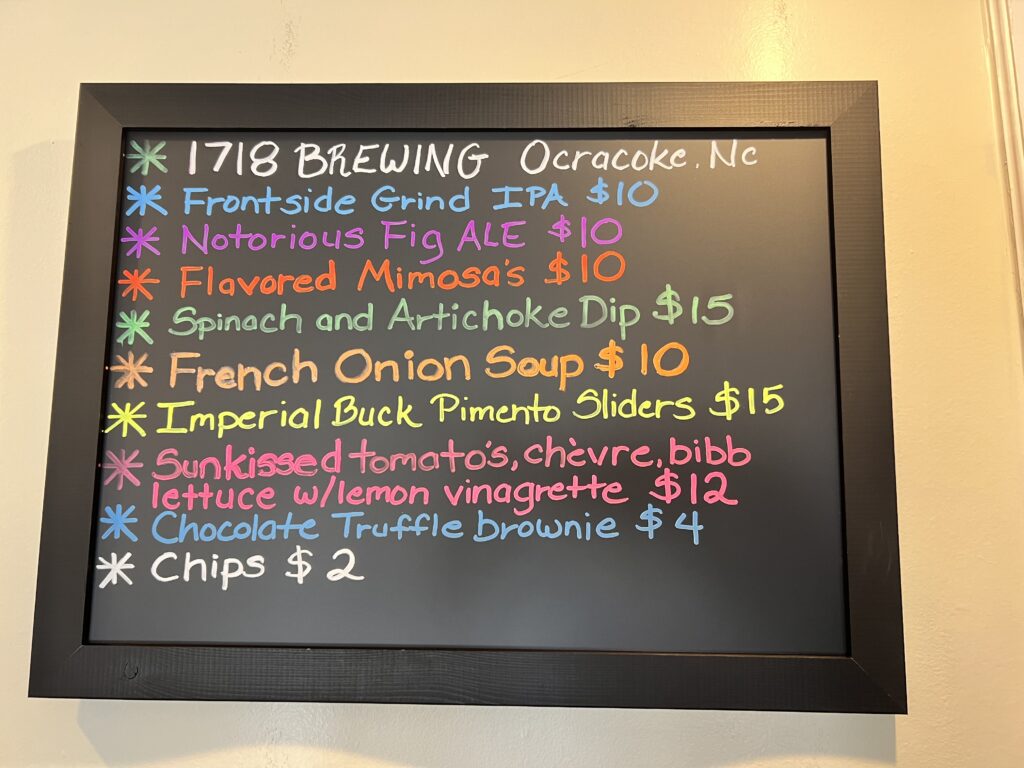 * 1718 BREWING Ocracoke, Nc
* Frontside Grind IPA $10
* Notorious Fig ALE $10
* Flavored Mimosa's $10
* Spinach and Artichoke Dip $15
* French Onion Soup $10
* Imperial Buck Pimento Sliders $15
* Sunkissed tomato's, chèvre, bibb
lettuce w/lemon vinagrette $12
* Chocolate Truffle brownie $4
* Chips $2